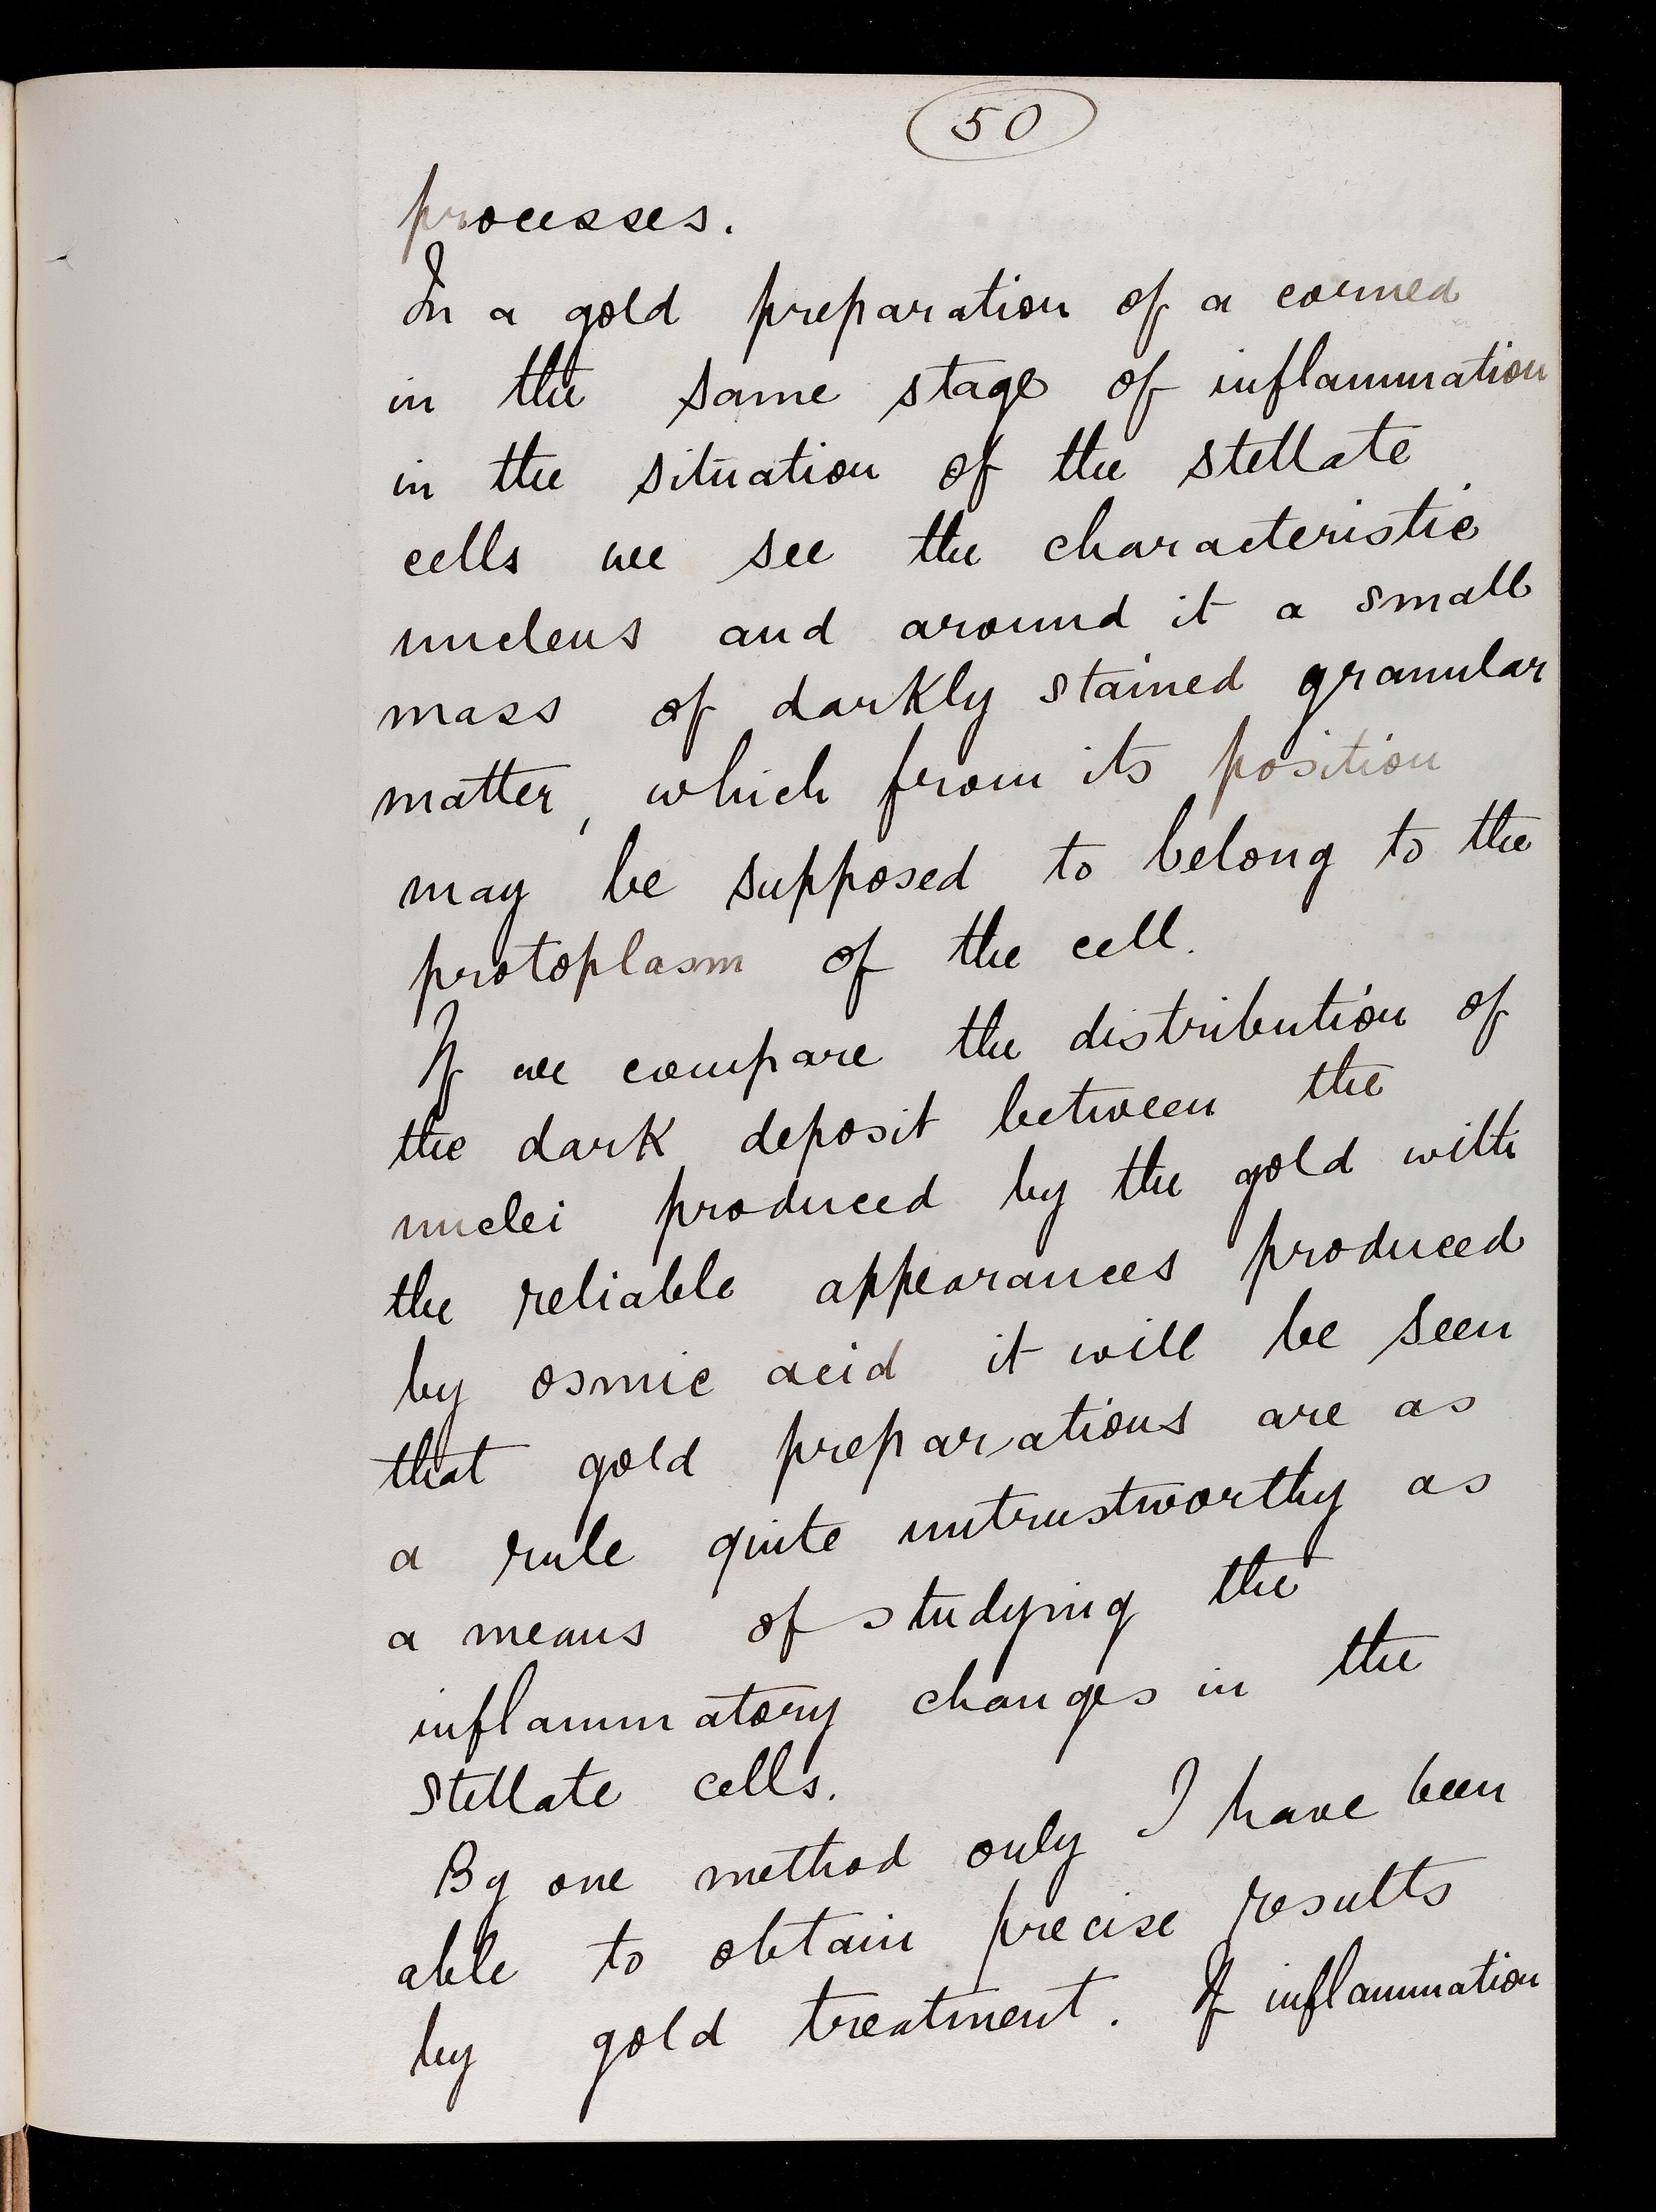 50
processes.
In a gold preparation of a cornea
in the same stage of inflammation
in the situation of the stellate
cells we see the characteristic
nucleus and around it a small
mass of darkly stained granular
matter, which from its position
may be supposed to belong to the
protoplasm of the cell.
If we compare the distribution of
the dark deposit between the
nuclei produced by the gold with
the reliable appearances produced
by osmic acid it will be seen
that gold preparations are as
a rule quite untrustworthy as
a means of studying the
inflammatory changes in the
stellate cells.
By one method only I have been
able to obtain precise results
by gold treatment. If inflammation